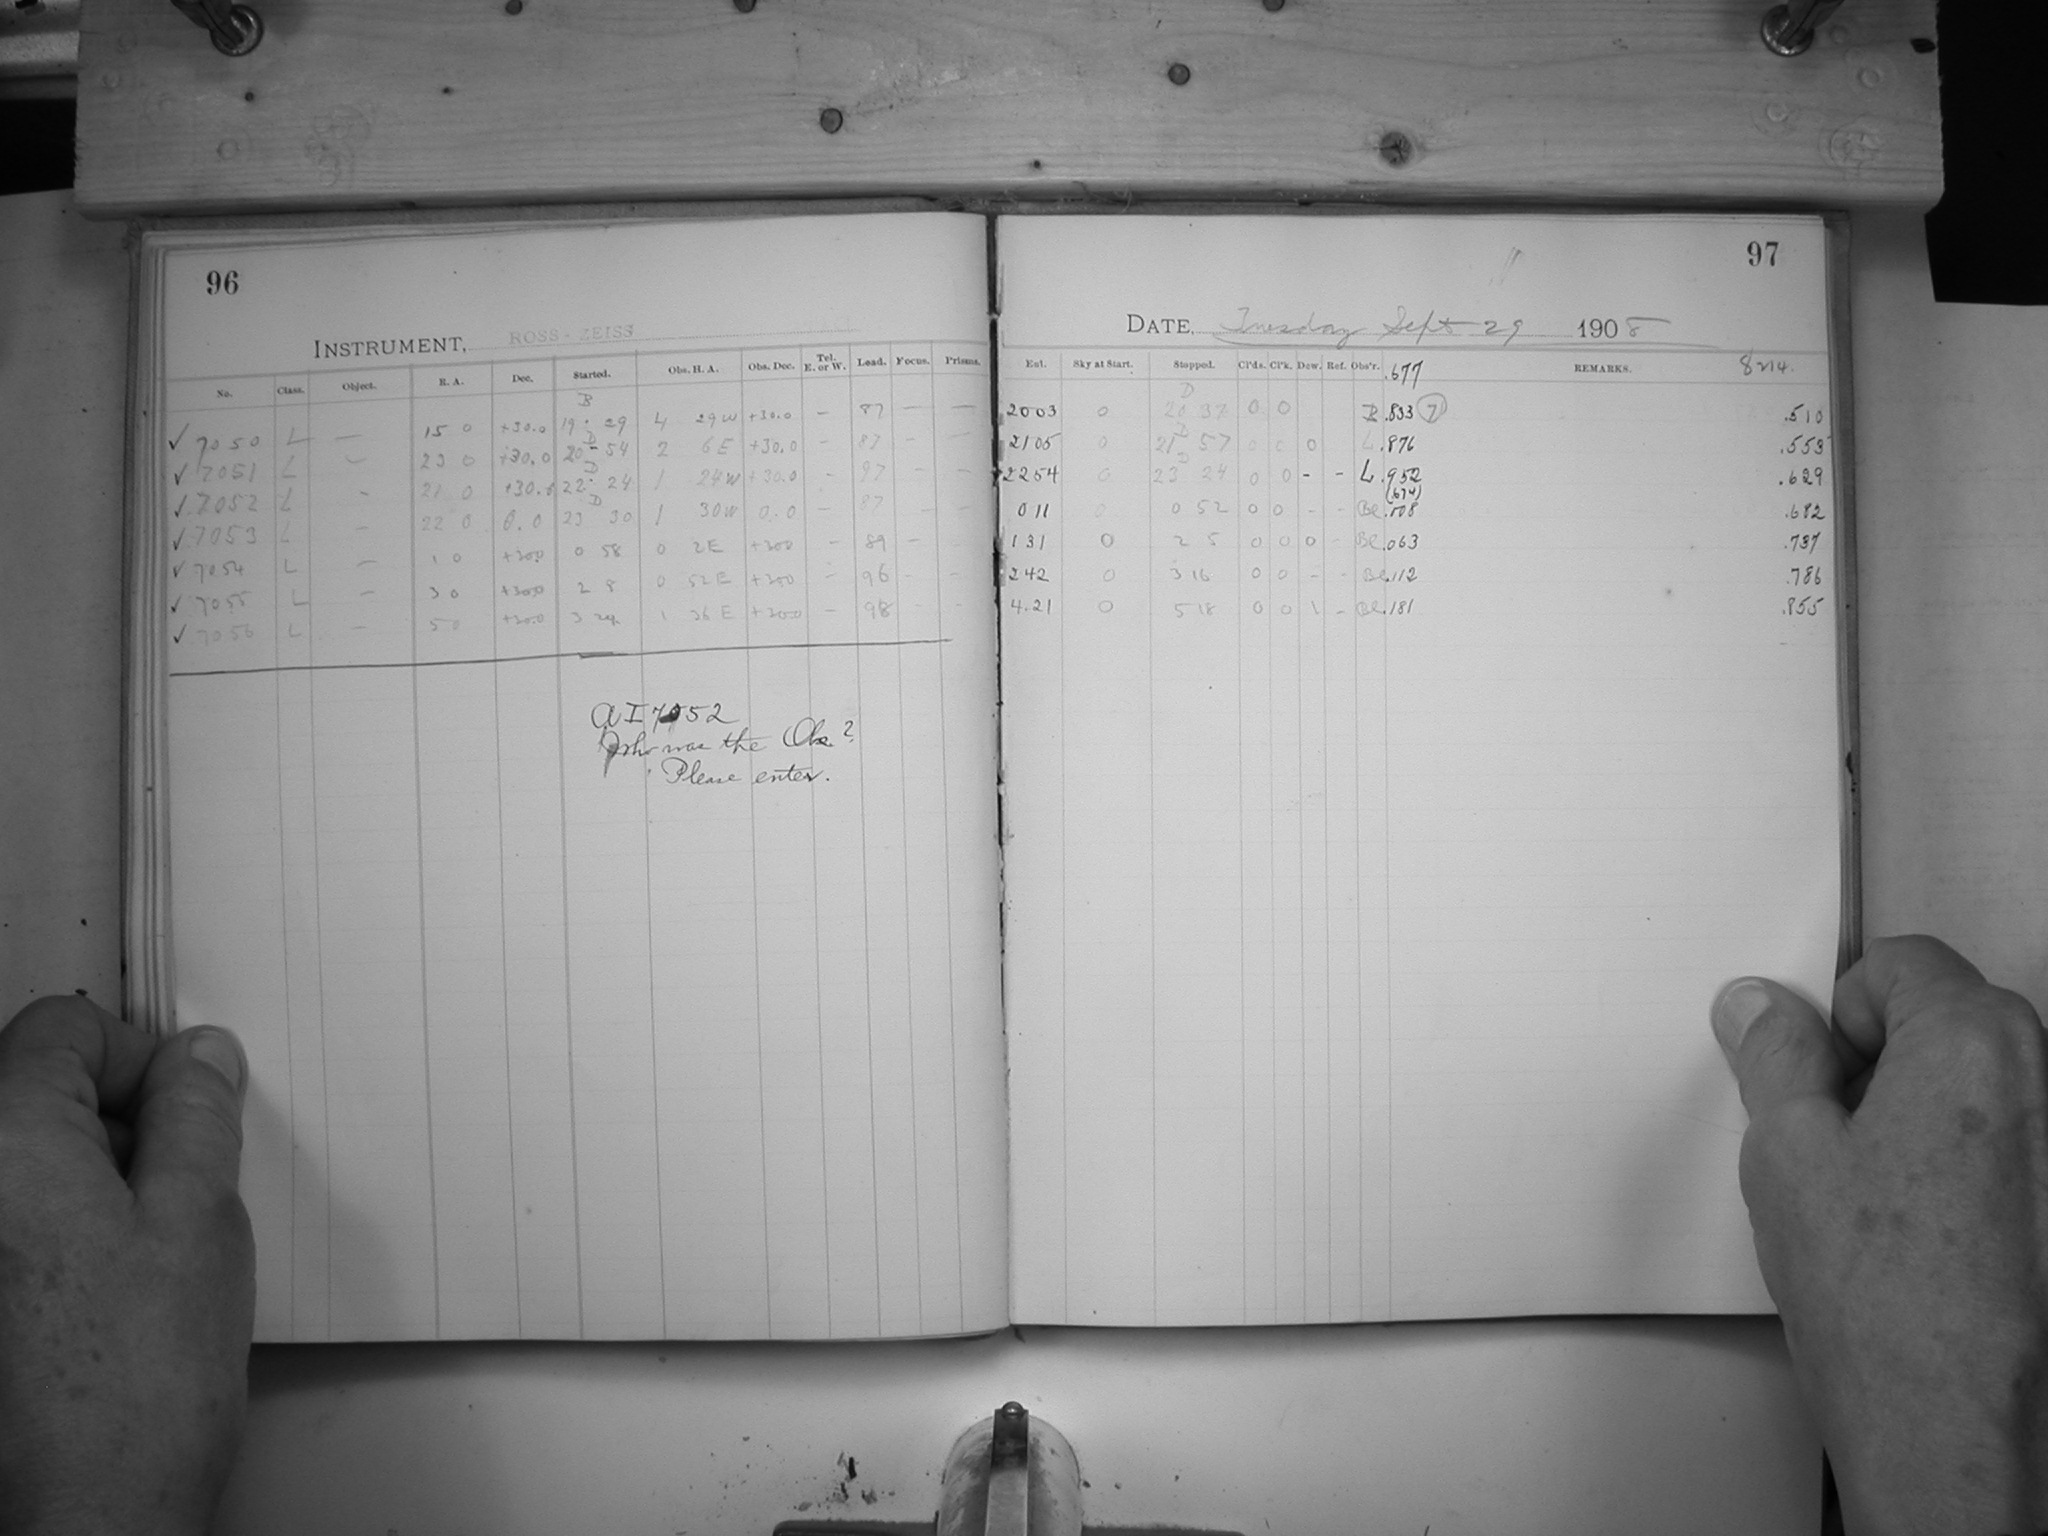 96
INSTRUMENT, ROSS-ZEISS
No. Class. Object. R. A. Dec. Started. Obs. H. A. Obs. Dec. Tel. E. or W. Lead. Focus. Prisms.
✓ 7050 L — 15 0 +30.0 19 29 4 29 W +30.0 — 87 — —
✓ 7051 L — 23 0 +30.0 20 54 2 6 E +30.0 - 87 - -
✓ 7052 L - 21 0 +30.0 22 24 1 24 W +30.0 - 97 - -
✓ 7053 L - 22 0 0.0 23 30 1 30 W 0.0 - 87 - -
✓ 7054 L - 1 0 +30.0 0 58 0 2 E +30.0 - 89 - -
✓ 7055 L - 3 0 +30.0 2 8 0 52 E +30.0 - 96 - -
✓ 7056 L - 5 0 +30.0 3 24 1 36 E +30.0 - 98 - -
AI 7052
Who was the Obs.?
Please enter.
97
DATE, Tuesday Sept 29 1908
Ent. Sky at Start. Stopped. Cl'ds. Cl'k. Dew. Ref. Obs'r. .677 REMARKS. 8214.
2003 0 20 37 0 0 .833 (7) .510
2105 0 21 57 0 0 0 L .876 .553
2254 0 23 24 0 0 - - L .952 .629
(.674)
0 11 0 0 52 0 0 - - Bl .682
1 31 0 2 5 0 0 0 - Bl .063 .737
2 42 0 3 16 0 0 - - Bl .112 .786
4.21 0 5 18 0 0 1 - Bl .181 .855